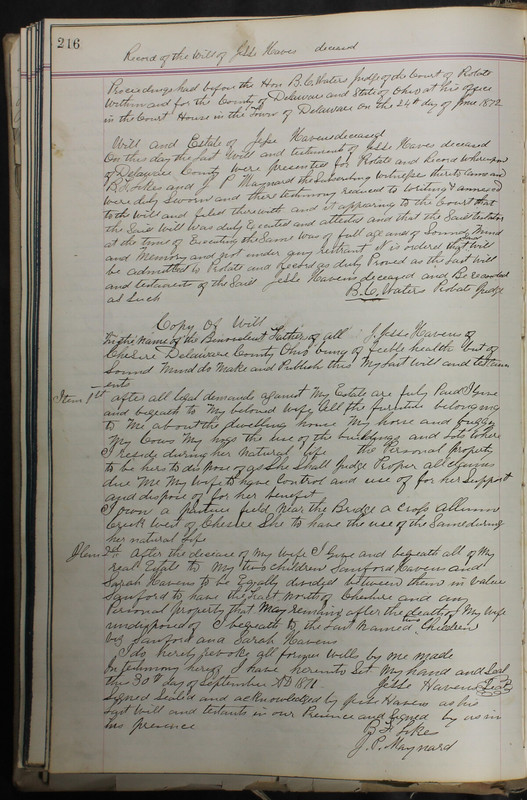 216
Record of the Will of Jesse Havens deceased
Proceedings had before the Hon B.C. Waters Judge of the Court of Probate
Within and for the County of Delaware and State of Ohio at his office
in the Court House in the Town of Delaware on the 24th day of June 1872
Will and Estate of Jesse Havens deceased
On this day the last Will and testament of Jesse Havens deceased
of Delaware County were presented for Probate and Record whereupon
B.F. Fikes and J P Maynard the Subscribing Witnesses thereto came and
were duly Sworn and there testimony reduced to Writing & annexed
to the Will and filed therewith and it appearing to the Court that
the Said Will was duly Executed and attested and that the Said testator
at the time of Executing the Same was of full age and of Sound Mind
and Memory and not under any restraint it is ordered that Will
be admitted to Probate and Record as duly Proved as the last Will
and testament of the Said Jesse Havens deceased and Be recorded
as Such B.C. Waters Probate Judge
Copy of Will
In the name of the Benevolent Father of all I Jesse Havens of
Cheshire Delaware County Ohio being of feeble health but of
Sound Mind do Make and Publish this My last Will and testam
-ents
Item 1st after all legal demands against My Estate are fuly Paid I give
and beqeath to My beloved Wife all the furniture belonging
to Me about the dwelling house My horse and buggy
My Cows My hogs the use of the buildings and lots where
I reside during her natural life the Personal Property
to be hers to dispose of as She Shall Judge Proper all claims
due Me My Wife to have Control and use of for her Support
and dispose of for her benefit
I own a pasture field near the Bridge a cross Allumn
Creek West of Cheshire She to have the use of the Same during
her natural life
Item 2d After the decease of My Wife I give and beqeath all of My
real Estate to My two children Sanford Havens and
Sarah Havens to be Equally divided between them in Value
Sanford to have the East north of Cheshire and any
Personal Property that May remain after the death of My Wife
undisposed of I beqeath to the last Named two Children
viz Sanford and Sarah Havens
I do hereby revoke all former Wills by me Made
In testimony hereof I have hereunto Set My hand and Seal
this 30th day of September AD 1871 Jesse Havens Seal
Signed Sealed and acknowledged by Jesse Havens as his
last Will and testants in our Presence and Signed by us in
his presence B F Fikes
J. P. Maynard